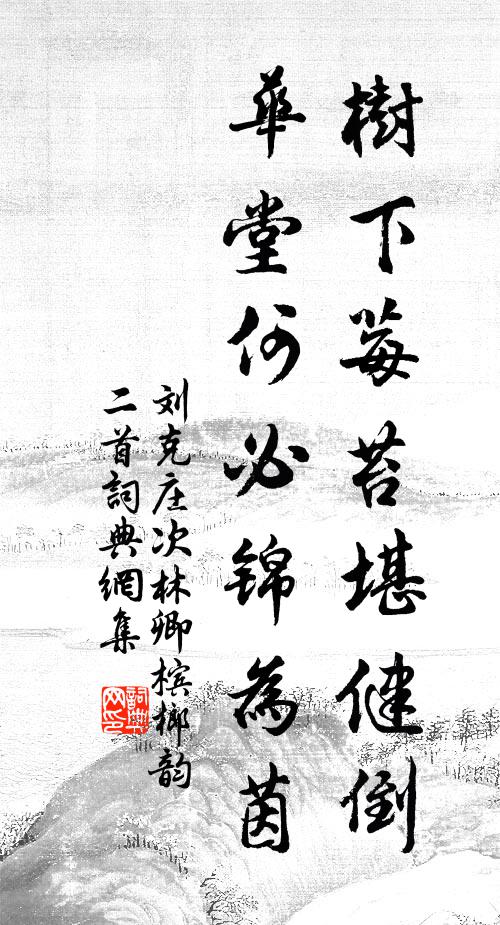 樹下莓苔堪健倒
華堂何必錦為茵
刘克庄次林卿檳榔韵
二首詞典網集